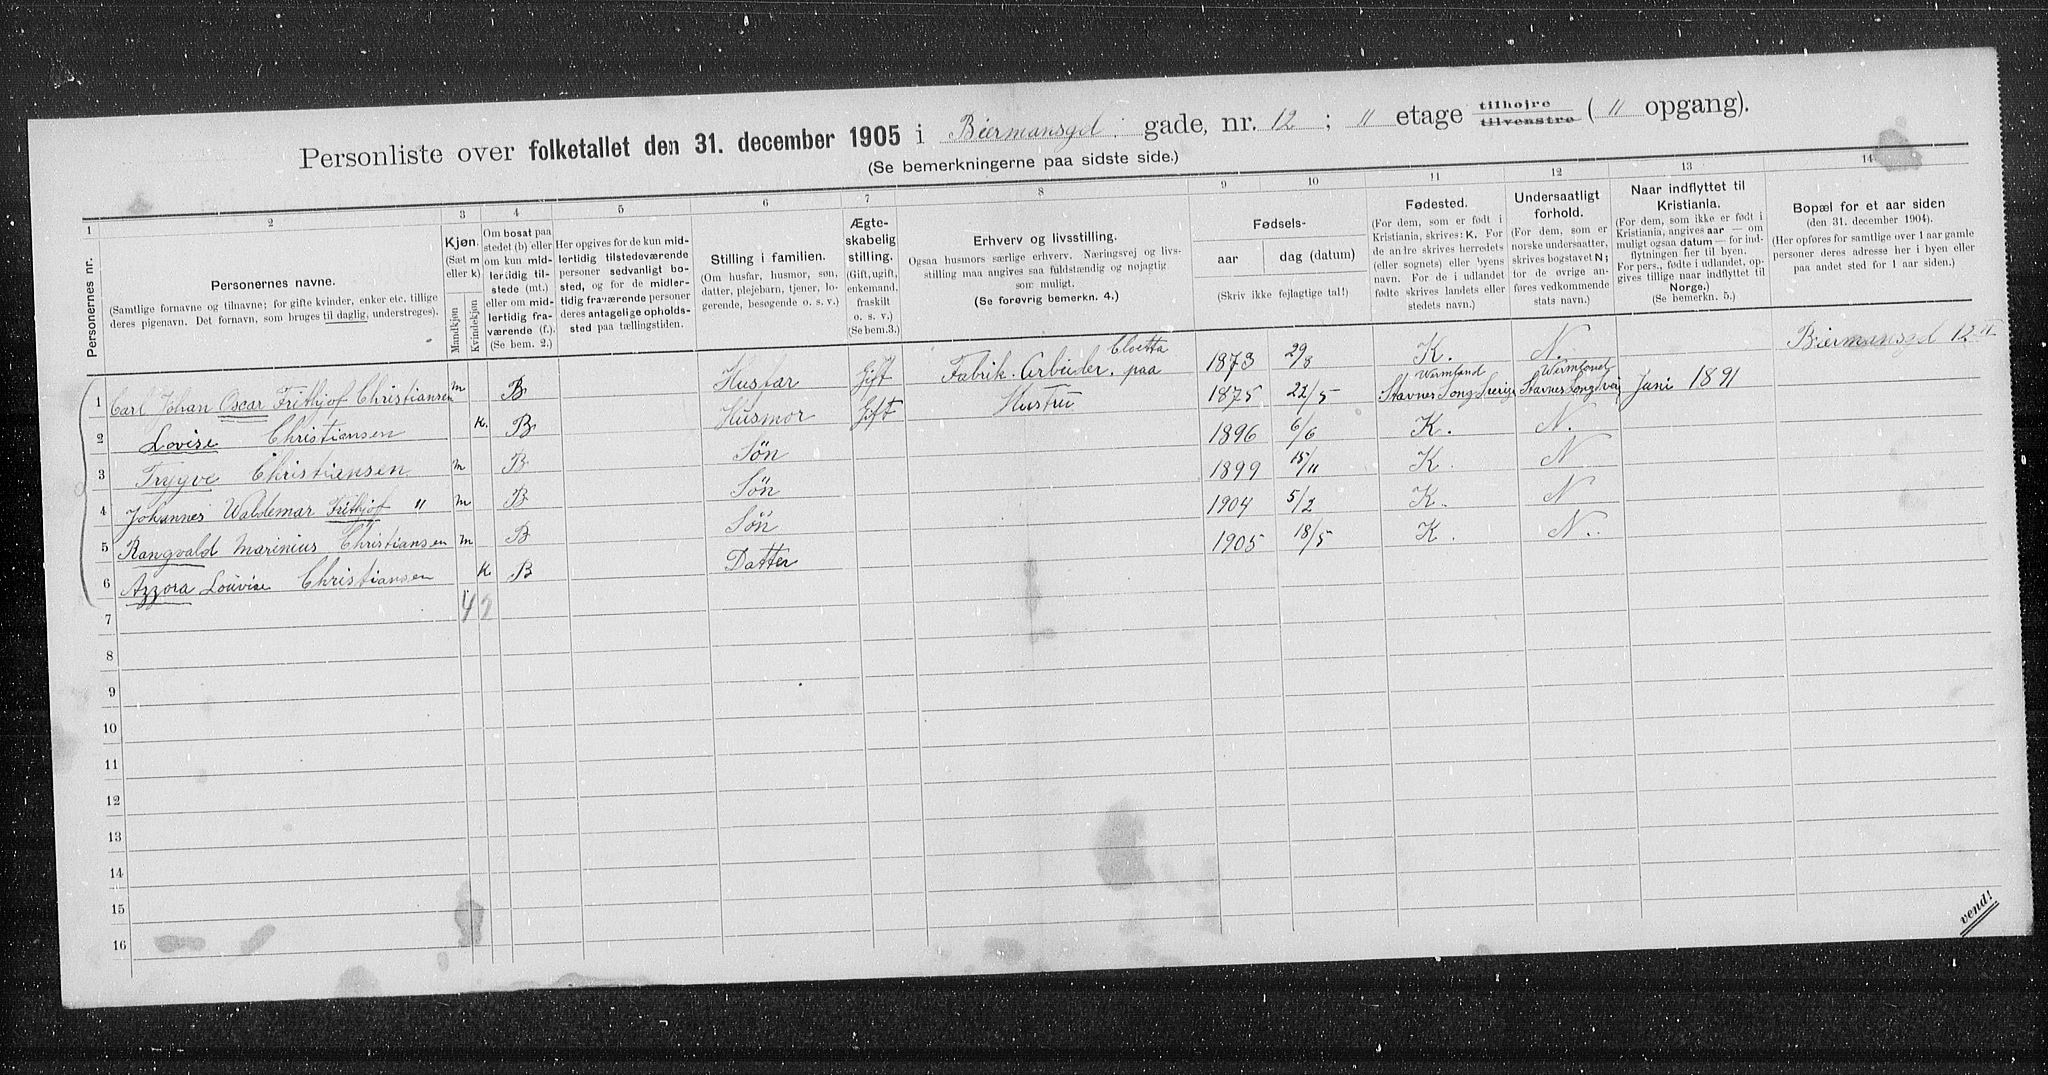 Personliste over folketallet den 31. december 1905 i Biermansgd. gade, nr. 12 ; II etage tilhøjre tilvenstre ( II opgang).
(Se bemerkningerne paa sidste side.)
1 2 3 4 5 6 7 8 9 10 11 12 13 14
Personernes nr.
Personernes navne.
(Samtlige fornavne og tilnavne; for gifte kvinder, enker etc. tillige
deres pigenavn. Det fornavn, som bruges til daglig, understreges).
Kjøn.
(Sæt m
eller k)
Mandkjøn
Kvindekjøn
Om bosat paa
stedet (b) eller
om kun mid-
lertidig til-
stede (mt.)
eller om mid-
lertidig fra-
værende (f.).
(Se bem. 2.)
Her opgives for de kun mid-
lertidig tilstedeværende
personer sedvanligt bo-
sted, og for de midler-
tidig fraværende personer
deres antagelige opholds-
sted paa tællingstiden.
Stilling i familien.
(Om husfar, husmor, søn,
datter, plejebarn, tjener, lo-
gerende, besøgende o. s. v.)
Ægte-
skabelig
stilling.
(Gift, ugift,
enkemand,
fraskilt
o. s. v.)
(Se bem.3.)
Erhverv og livsstilling.
Ogsaa husmors særlige erhverv. Næringsvej og livs-
stilling maa angives saa fuldstændig og nøjagtig
som muligt.
(Se forøvrig bemerkn. 4.)
Fødsels-
aar dag (datum)
(Skriv ikke fejlagtige tal!)
Fødested.
(For dem, som er født i
Kristiania, skrives: K. For
de andre skrives herredets
(eller sognets) eller byens
navn. For de i udlandet
fødte skrives landets eller
stedets navn.)
Undersaatligt
forhold.
(For dem, som er
norske undersaatter,
skrives bogstavet N;
for de øvrige an-
føres vedkommende
stats navn.)
Naar indflyttet til
Kristiania.
(For dem, som ikke er født i
Kristiania, angives aar — om
muligt ogsaa datum — for ind-
flytningen her til byen.
For pers., fødte i udlandet, op-
gives tillige naar indflyttet til
Norge.)
(Se bemerkn. 5.)
Bopæl for et aar siden
(den 31. december 1904).
(Her opføres for samtlige over 1 aar gamle
personer deres adresse her i byen eller
paa andet sted for 1 aar siden.)
1 Carl Johan Oscar Frithjof Christiansen m B Husfar Gift Fabrik. Arbeider. paa Cloetta 1873 29/8 K. N. Biermansgd 12 II
2 Lovise Christiansen K. B Husmor Gift Hustru 1875 22/5 Stavnes Song Sverige Wermland Stavnes Song Wermland Juni 1891
3 Trygve Christiansen m B Søn 1896 6/6 K. N.
4 Johannes Waldemar Frithjof " m B Søn 1899 15/11 K. N
5 Rangvald Marinius Christiansen m B Søn 1904 5/2 K. N
6 Azzora Louvise Christiansen K B Datter 1905 18/5 K. N.
7 4 2
8
9
10
11
12
13
14
15
16
vend!